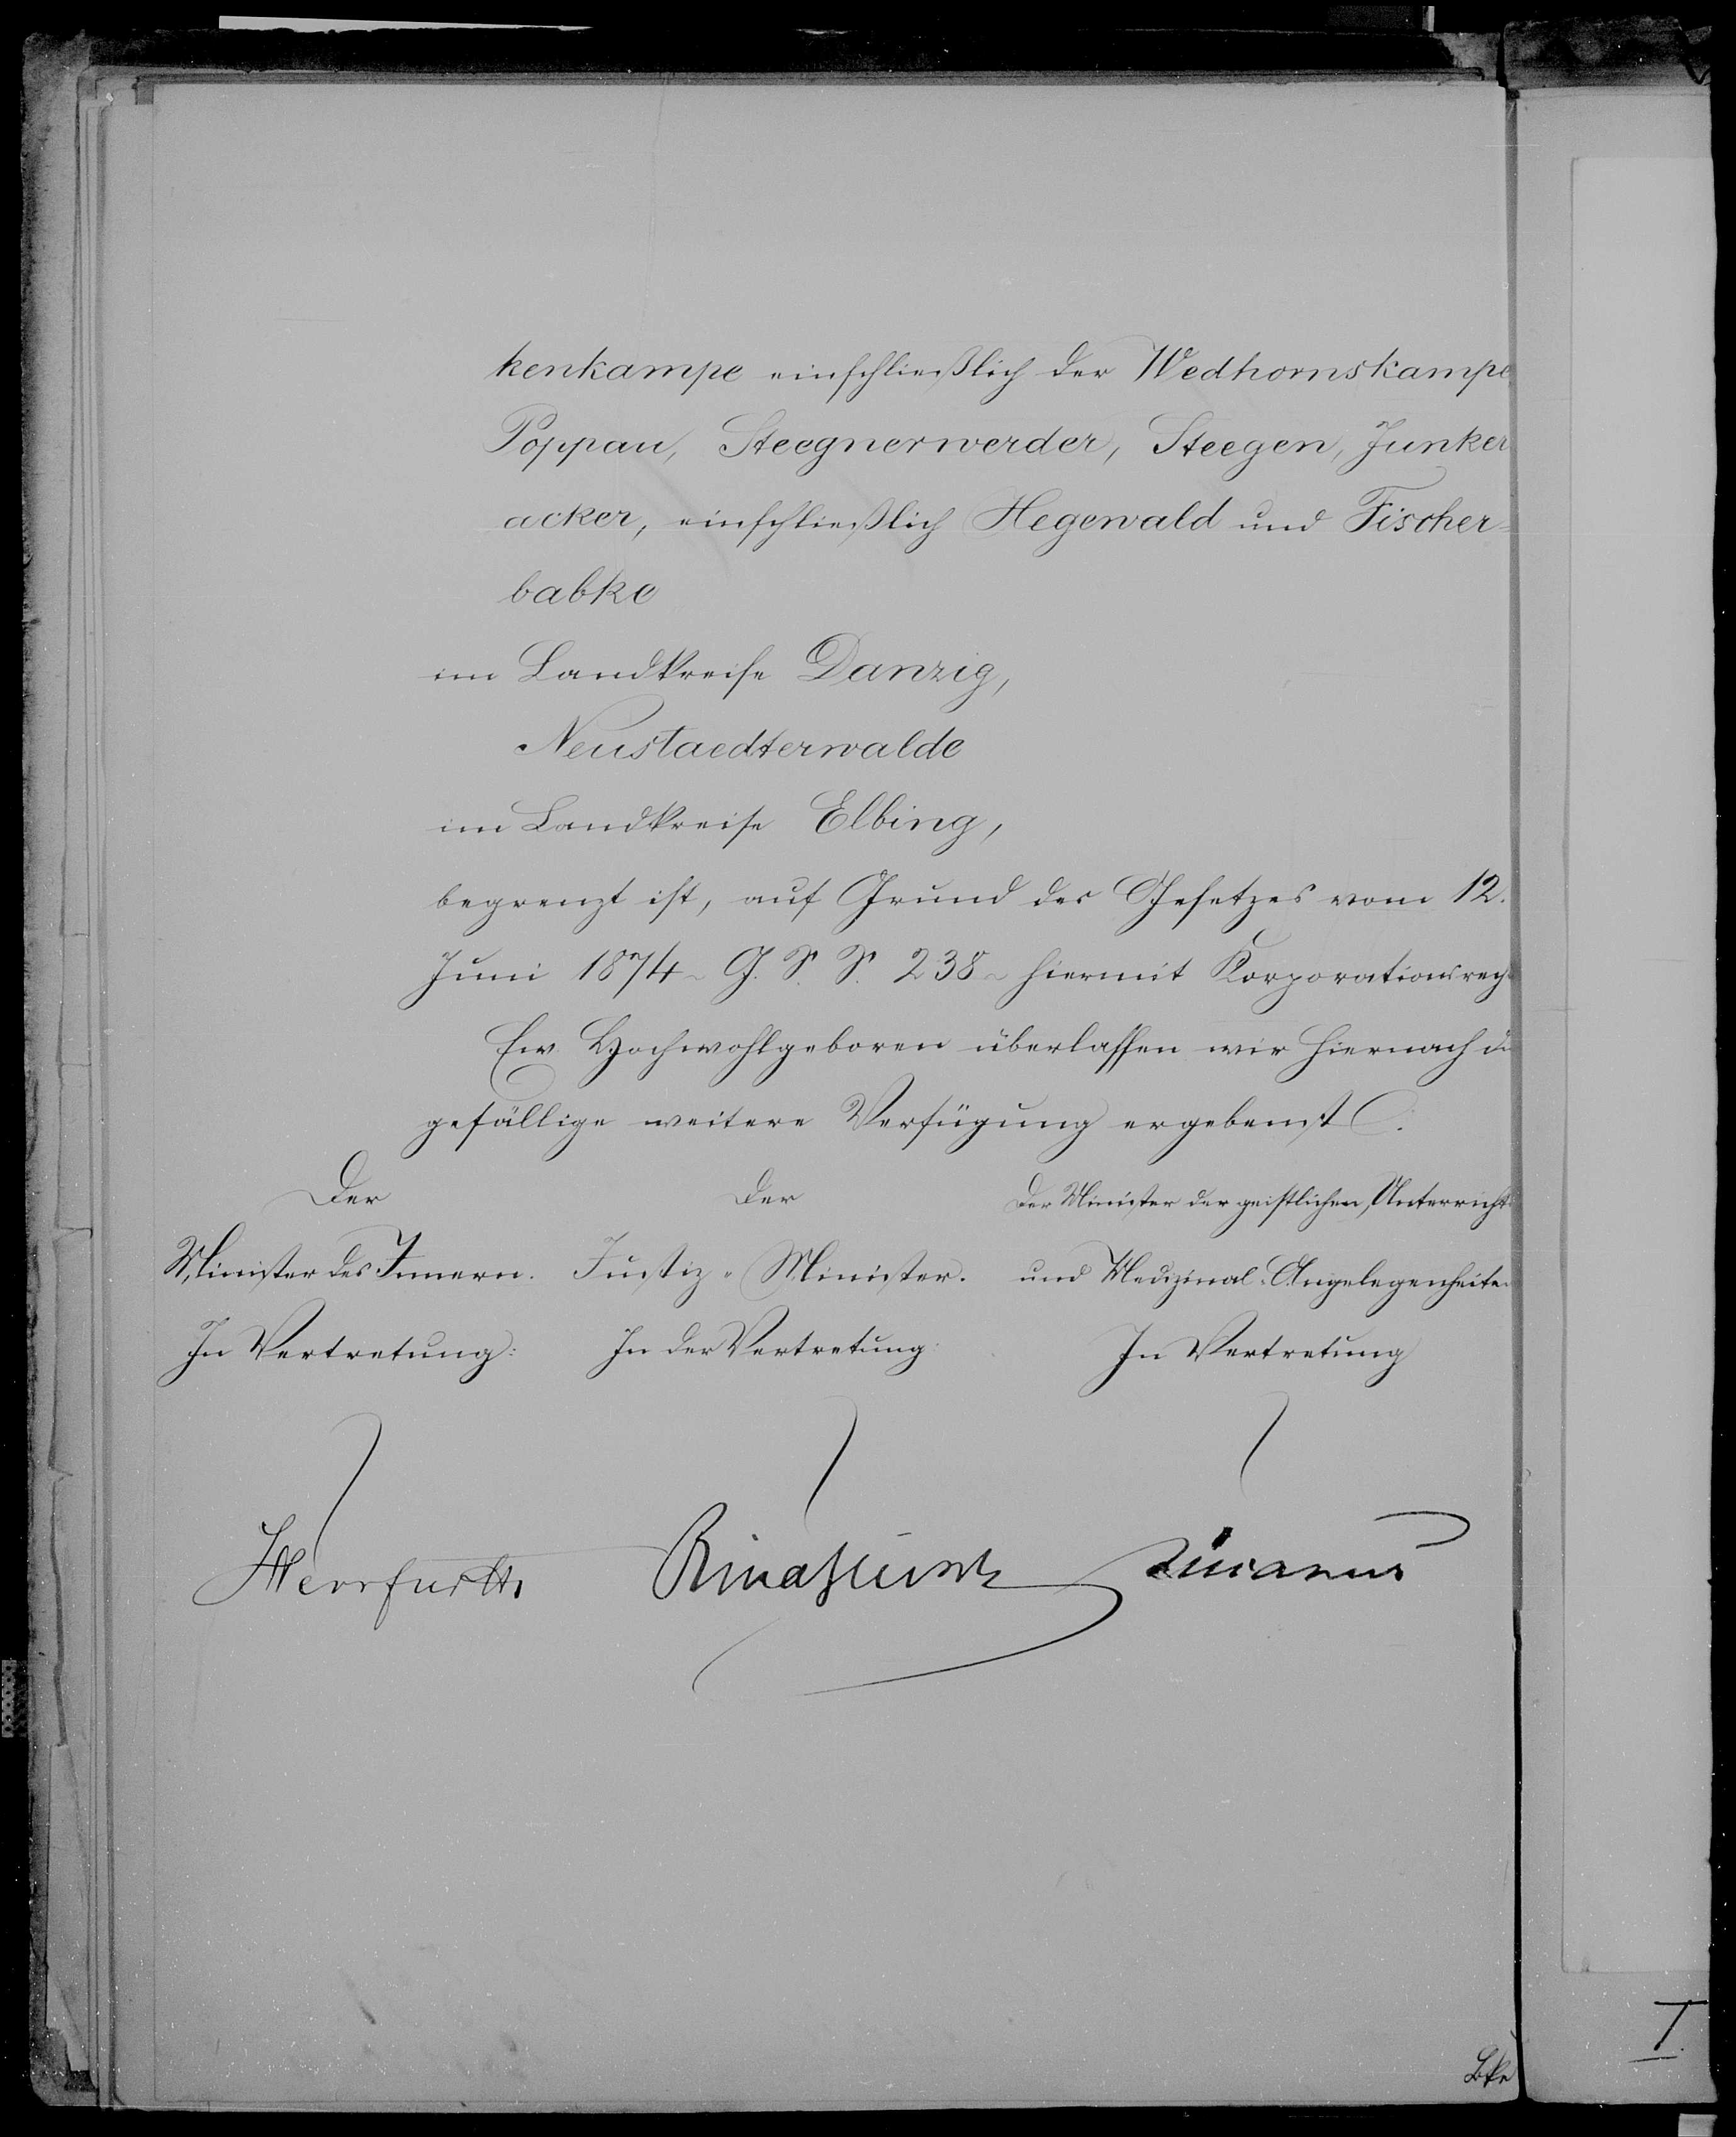 kenkampe einschließlich der Wedhornskampe
Poppau, Steegnerwerder, Steegen, Junker
acker, einschließlich Hegewald und Fischer=
babke
im Landkreise Danzig,
Neustaedterwalde
im Landkreise Elbing,
begrenzt ist, auf Grund des Gesetzes vom 12.
Juni 1874 - G. S. S. 238 - hiermit Korporationsrech
Ew. Hochwohlgeboren überlassen wir hiernach di
gefällige weitere Verfügung ergebenst.
Der
Minister des Innern.
In Vertretung:
Herrfurth
Der
Justiz-Minister.
In der Vertretung:
Rindfleisch
Der Minister der geistlichen, Unterrichts
und Medizinal-Angelegenheiten
In Vertretung
Lucanus
I.